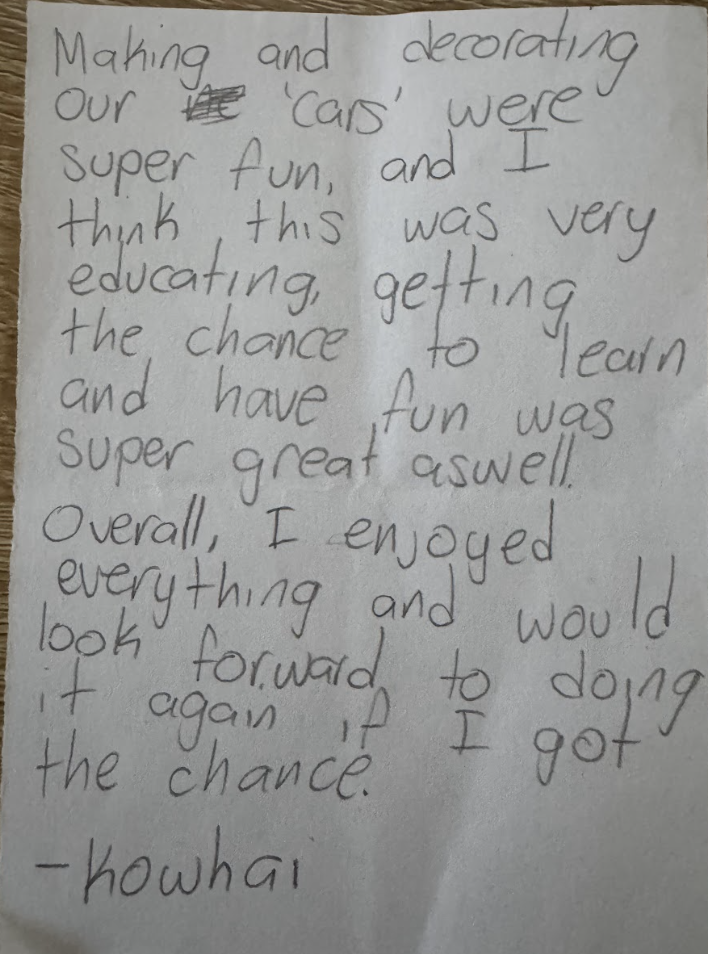 Making and decorating
our 'cars' were
super fun, and I
think this was very
educating, getting
the chance to learn
and have fun was
super great aswell.
Overall, I enjoyed
everything and would
look forward to doing
it again if I got
the chance.
-Kowhai